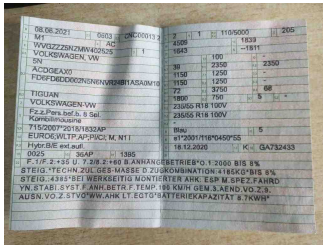 08.06.2021 0603 CNC00013 2
M1 AC
WVGZZZ5NZMW402525 1
VOLKSWAGEN-VW
5N
ACDGEAX0
TIGUAN
VOLKSWAGEN-VW
Fz.z.Pers.bef.b. 8 Spl.
Kombilimousine
715/2007*2018/1832AP
EURO6;WLTP;AP;PI/CI; M, N1 I
Hybr.B/E ext.aufl.
0025 36AP 1395
2 1 110/5000 205
4509 1839
1643 --1811
- 100 -
39 2350 2350
1150 1250 -
1150 1250 -
72 3750 68
1800 750 5 -
235/55 R18 100V
235/55 R18 100V
-
Blau 5
e1*2001/116*0450*55
18.12.2020 K GA732433
F.1/F.2:+35 U. 7.2/8.2:+80 B.ANHÄNGEBETRIEB*O.1:2000 BIS 8%
STEIG.*TECHN.ZUL.GES-MASSE D.ZUGKOMBINATION:4185KG*BIS 8%
STEIG.:4395*BEI WERKSEITIG MONTIERTER AHK: ESP M.SPEZ.FAHRD
YN.STABI.SYST.F.ANH.BETR.F.TEMP.100 KM/H GEM.3.AEND.VO.Z.9.
AUSN.VO.Z.STVO*WW.AHK LT.EGTG*BATTERIEKAPAZITÄT 8.7KWH*